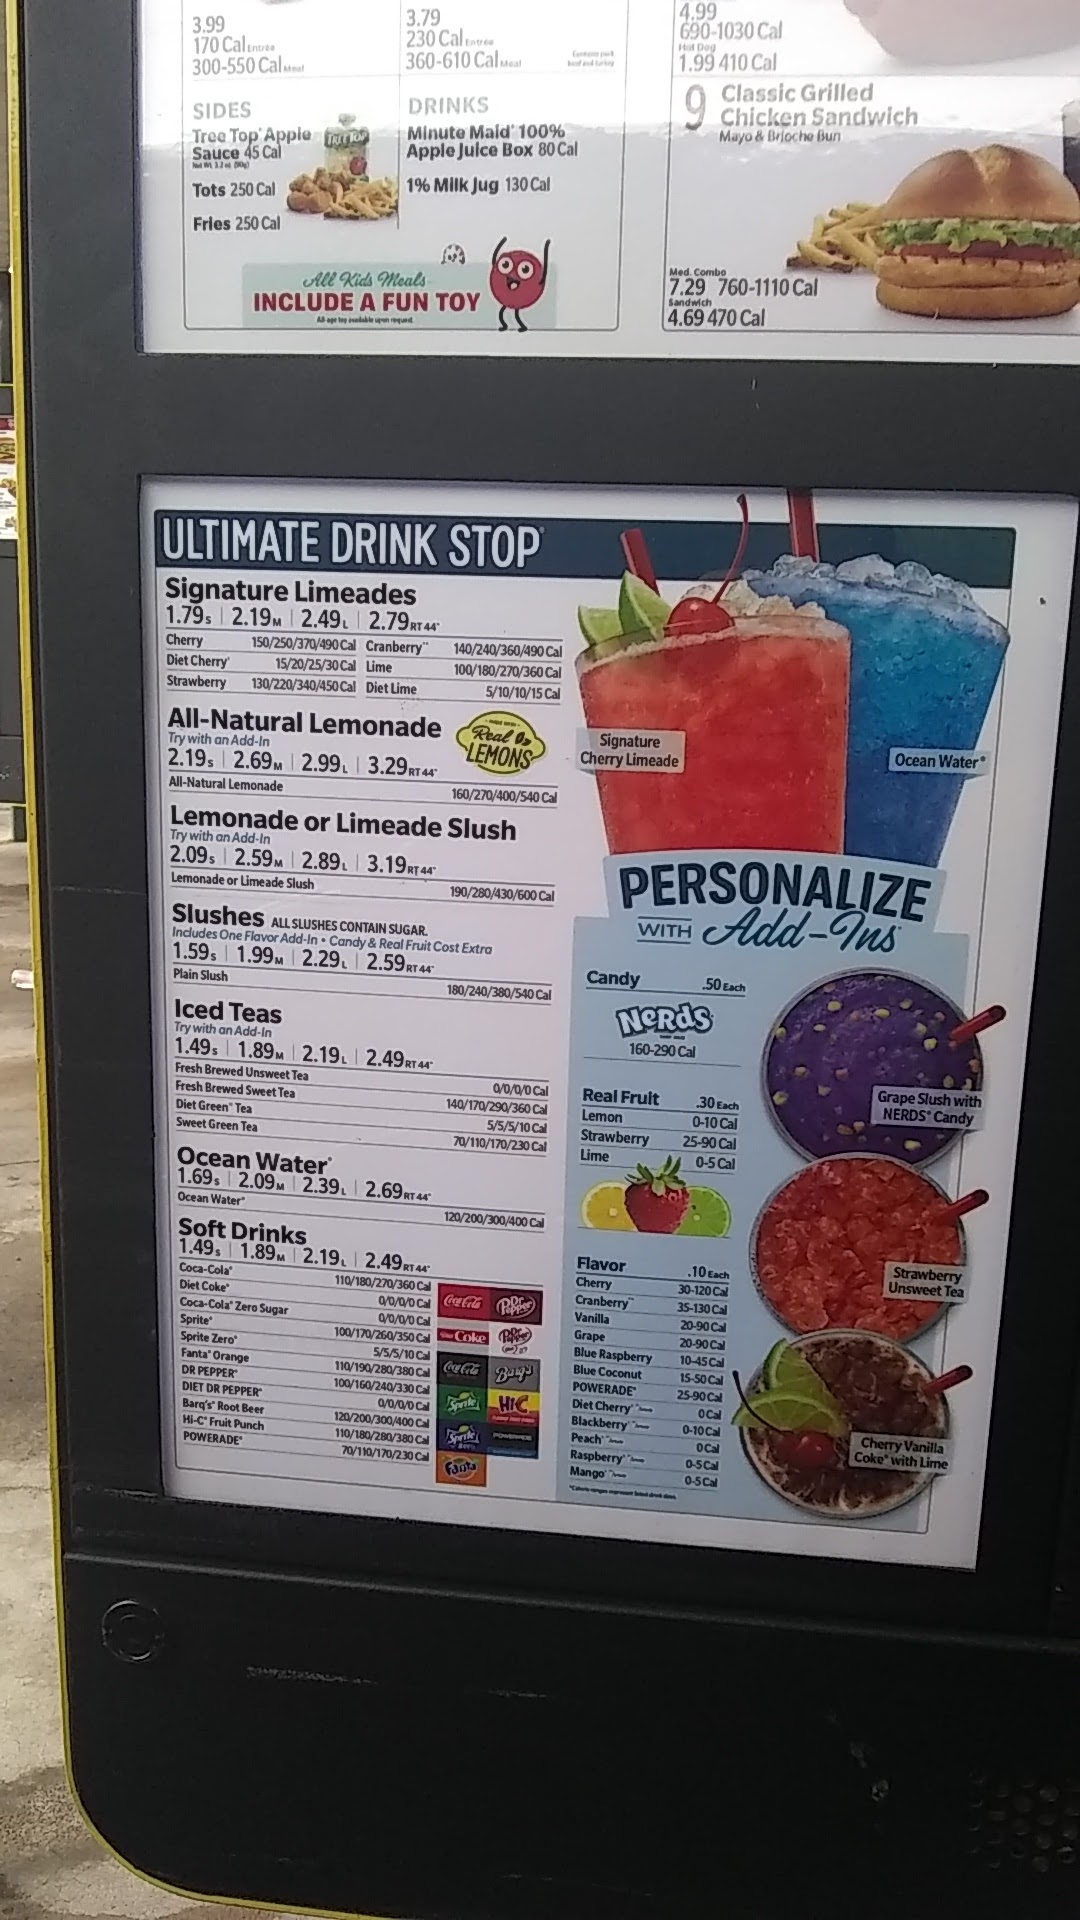 3.99
170 Cal Entrée
300-550 Cal Meal
3.79
230 Cal Entrée
360-610 Cal Meal
4.99
690-1030 Cal
Hot Dog
1.99 410 Cal
SIDES
Tree Top® Apple
Sauce 45 Cal
Tots 250 Cal
Fries 250 Cal
TREE TOP
DRINKS
Minute Maid® 100%
Apple Juice Box 80 Cal
1% Milk Jug 130 Cal
All Kids Meals
INCLUDE A FUN TOY
All-age toy available upon request.
9 Classic Grilled
Chicken Sandwich
Mayo & Brioche Bun
Med. Combo
7.29 760-1110 Cal
Sandwich
4.69 470 Cal
ULTIMATE DRINK STOP®
Signature Limeades
1.79 S | 2.19 M | 2.49 L | 2.79 RT 44®
Cherry 150/250/370/490 Cal
Diet Cherry 15/20/25/30 Cal
Strawberry 130/220/340/450 Cal
Cranberry 140/240/360/490 Cal
Lime 100/180/270/360 Cal
Diet Lime 5/10/10/15 Cal
All-Natural Lemonade
Try with an Add-In
2.19 S | 2.69 M | 2.99 L | 3.29 RT 44®
All-Natural Lemonade 160/270/400/540 Cal
Real
LEMONS
Lemonade or Limeade Slush
Try with an Add-In
2.09 S | 2.59 M | 2.89 L | 3.19 RT 44®
Lemonade or Limeade Slush 190/280/430/600 Cal
Slushes ALL SLUSHES CONTAIN SUGAR.
Includes One Flavor Add-In • Candy & Real Fruit Cost Extra
1.59 S | 1.99 M | 2.29 L | 2.59 RT 44®
Plain Slush 180/240/380/540 Cal
Iced Teas
Try with an Add-In
1.49 S | 1.89 M | 2.19 L | 2.49 RT 44®
Fresh Brewed Unsweet Tea 0/0/0/0 Cal
Fresh Brewed Sweet Tea 140/170/290/360 Cal
Diet Green Tea 5/5/5/10 Cal
Sweet Green Tea 70/110/170/230 Cal
Ocean Water®
1.69 S | 2.09 M | 2.39 L | 2.69 RT 44®
Ocean Water® 120/200/300/400 Cal
Soft Drinks
1.49 S | 1.89 M | 2.19 L | 2.49 RT 44®
Coca-Cola® 110/180/270/360 Cal
Diet Coke® 0/0/0/0 Cal
Coca-Cola® Zero Sugar 0/0/0/0 Cal
Sprite® 100/170/260/350 Cal
Sprite Zero® 5/5/5/10 Cal
Fanta® Orange 110/190/280/380 Cal
DR PEPPER® 100/160/240/330 Cal
DIET DR PEPPER® 0/0/0/0 Cal
Barq's® Root Beer 120/200/300/400 Cal
Hi-C® Fruit Punch 110/180/280/380 Cal
POWERADE® 70/110/170/230 Cal
Coca-Cola Dr Pepper
Coke Dr Pepper
Coca-Cola Barq's
Sprite Hi-C
Sprite POWERADE
Fanta
Signature
Cherry Limeade
Ocean Water®
PERSONALIZE
WITH Add-Ins
Candy .50 Each
NERDS
160-290 Cal
Real Fruit .30 Each
Lemon 0-10 Cal
Strawberry 25-90 Cal
Lime 0-5 Cal
Flavor .10 Each
Cherry 30-120 Cal
Cranberry 35-130 Cal
Vanilla 20-90 Cal
Grape 20-90 Cal
Blue Raspberry 10-45 Cal
Blue Coconut 15-50 Cal
POWERADE® 25-90 Cal
Diet Cherry 0 Cal
Blackberry 0-10 Cal
Peach 0 Cal
Raspberry 0-5 Cal
Mango 0-5 Cal
Grape Slush with
NERDS® Candy
Strawberry
Unsweet Tea
Cherry Vanilla
Coke® with Lime